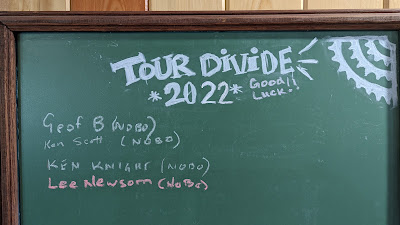 TOUR DIVIDE
*2022*
Good!!
Luck!!
Geof B (NOBO)
Ken Scott (NOBO)
KEN KNIGHT (NOBO)
Lee Newsom (NoBo)